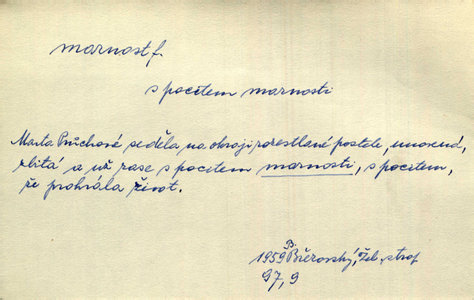 marnost f.
s pocitem marnosti
Marta Průchové seděla na okraji rozestlané postele, unavená,
zbitá a už zase s pocitem marnosti, s pocitem,
že prohrála život.
B.
1959 Březovský, Žel. strop
97, 9